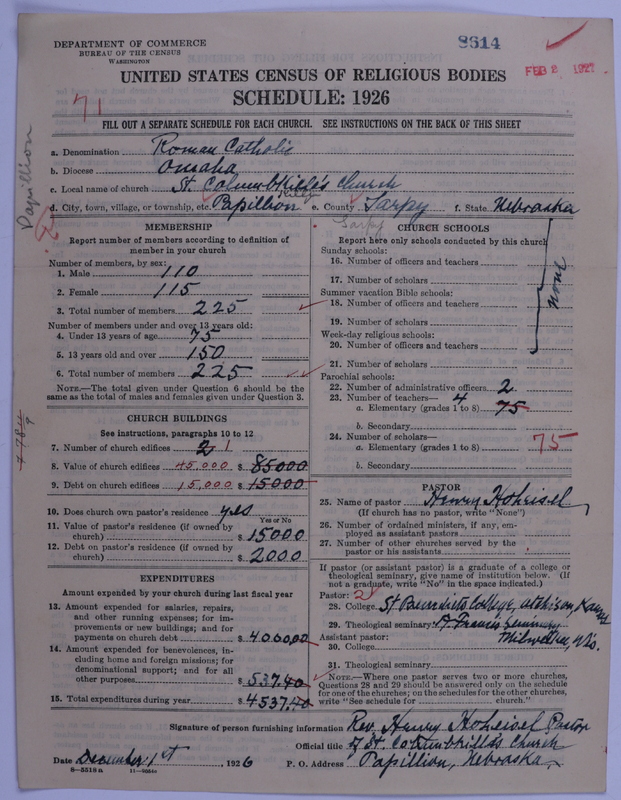 DEPARTMENT OF COMMERCE
BUREAU OF THE CENSUS
WASHINGTON
8614
FEB 2 1927
UNITED STATES CENSUS OF RELIGIOUS BODIES
SCHEDULE: 1926
71
FILL OUT A SEPARATE SCHEDULE FOR EACH CHURCH. SEE INSTRUCTIONS ON THE BACK OF THIS SHEET
Papillion
a. Denomination Roman Catholic
b. Diocese Omaha
c. Local name of church St. Columbkille's Church
d. City, town, village, or township, etc. Papillion e. County Sarpy f. State Nebraska
Sarpy
MEMBERSHIP
Report number of members according to definition of member in your church
Number of members, by sex:
1. Male 110
2. Female 115
3. Total number of members 225
Number of members under and over 13 years old:
4. Under 13 years of age 75
5. 13 years old and over 150
6. Total number of members 225
NOTE.—The total given under Question 6 should be the same as the total of males and females given under Question 3.
CHURCH BUILDINGS
See instructions, paragraphs 10 to 12
7. Number of church edifices 2 1
8. Value of church edifices 45,000 $ 85000
9. Debt on church edifices 15,000 $ 15000
10. Does church own pastor's residence yes
Yes or No
11. Value of pastor's residence (if owned by church) $ 15000
12. Debt on pastor's residence (if owned by church) $ 2000
EXPENDITURES
Amount expended by your church during last fiscal year
13. Amount expended for salaries, repairs, and other running expenses; for improvements or new buildings; and for payments on church debt $ 4000.00
14. Amount expended for benevolences, including home and foreign missions; for denominational support; and for all other purposes $ 537.40
15. Total expenditures during year $ 4537.40
CHURCH SCHOOLS
Report here only schools conducted by this church
Sunday schools:
16. Number of officers and teachers
17. Number of scholars
Summer vacation Bible schools:
18. Number of officers and teachers
none
19. Number of scholars
Week-day religious schools:
20. Number of officers and teachers
21. Number of scholars
Parochial schools:
22. Number of administrative officers 2
23. Number of teachers— 4
a. Elementary (grades 1 to 8) 75
b. Secondary
24. Number of scholars—
a. Elementary (grades 1 to 8) 75
b. Secondary
PASTOR
25. Name of pastor Henry Hoheisel
(If church has no pastor, write "None")
26. Number of ordained ministers, if any, employed as assistant pastors
27. Number of other churches served by the pastor or his assistants
If pastor (or assistant pastor) is a graduate of a college or theological seminary, give name of institution below. (If not a graduate, write "No" in the space indicated.)
Pastor: 2
28. College St Benedicts College, Atchison, Kans
29. Theological seminary St Francis Seminary
Milwaukee, Wis.
Assistant pastor:
30. College
31. Theological seminary
NOTE.—Where one pastor serves two or more churches, Questions 28 and 29 should be answered only on the schedule for one of the churches; on the schedules for the other churches, write "See schedule for church."
Signature of person furnishing information Rev. Henry Hoheisel Pastor
Official title of St. Columbkille's Church
Date December 1st 1926 P. O. Address Papillion, Nebraska
8—5518 a